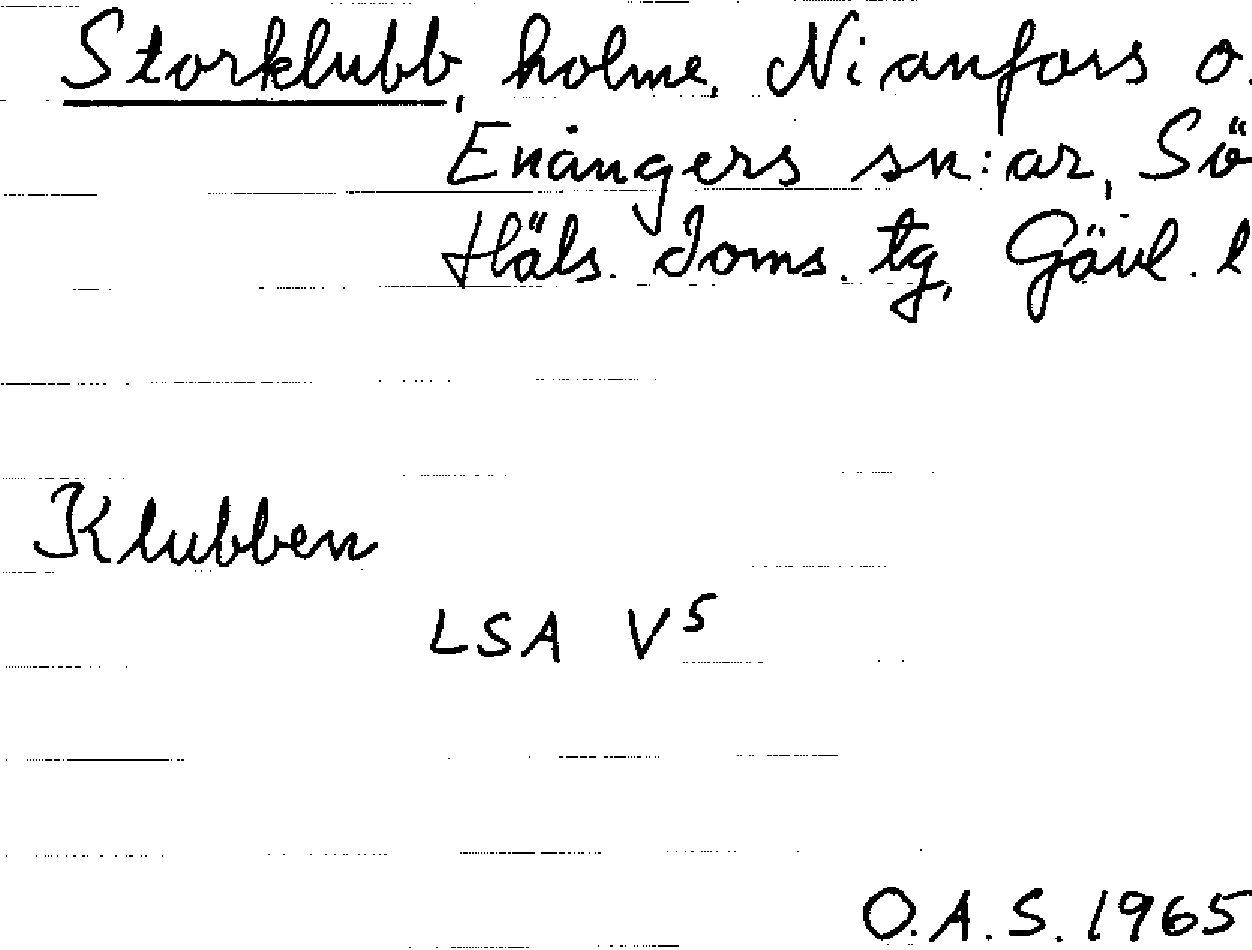 Storklubb, holme, Nianfors o.
Enångers sn:ar, Sö
Häls. doms. tg, Gävl. l
Klubben
LSA V⁵
O.A.S. 1965